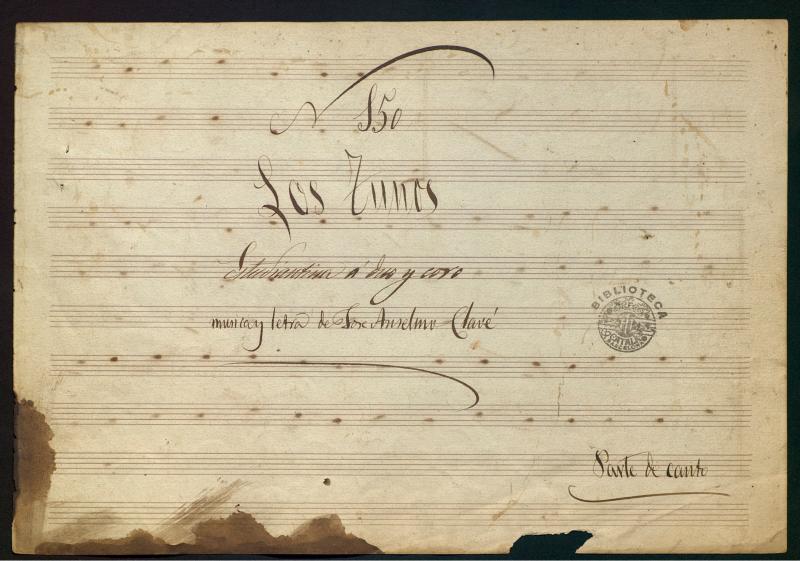 N 150
Los Tunos
Estudiantina á duo y coro
musica y letra de Jose Anselmo Clavé
BIBLIOTECA
Parte de canto